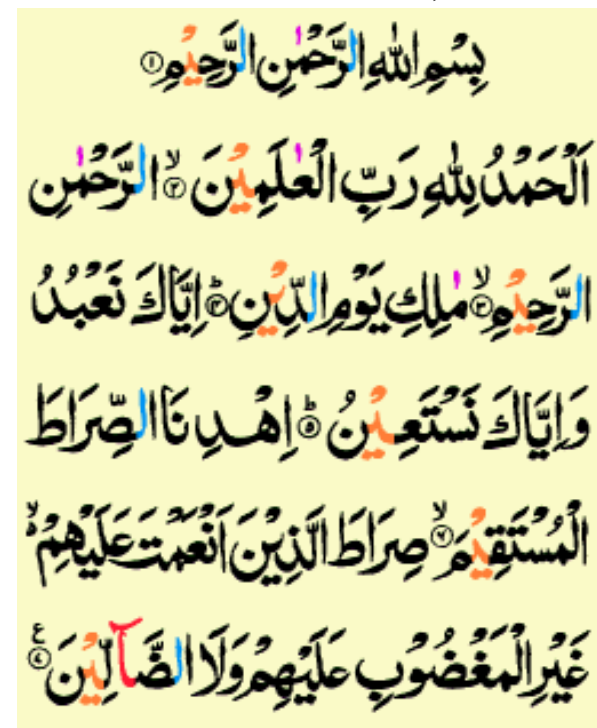 بِسْمِ اللّٰهِ الرَّحْمٰنِ الرَّحِيْمِ ۝١
اَلْحَمْدُ لِلّٰهِ رَبِّ الْعٰلَمِيْنَ ۙ۝٢ الرَّحْمٰنِ
الرَّحِيْمِ ۙ۝٣ مٰلِكِ يَوْمِ الدِّيْنِ ؕ۝٤ اِيَّاكَ نَعْبُدُ
وَاِيَّاكَ نَسْتَعِيْنُ ؕ۝٥ اِهْدِنَا الصِّرَاطَ
الْمُسْتَقِيْمَ ۙ۝ صِرَاطَ الَّذِيْنَ اَنْعَمْتَ عَلَيْهِمْ ۙ۝
غَيْرِ الْمَغْضُوْبِ عَلَيْهِمْ وَلَا الضَّآلِّيْنَ ۝ ع